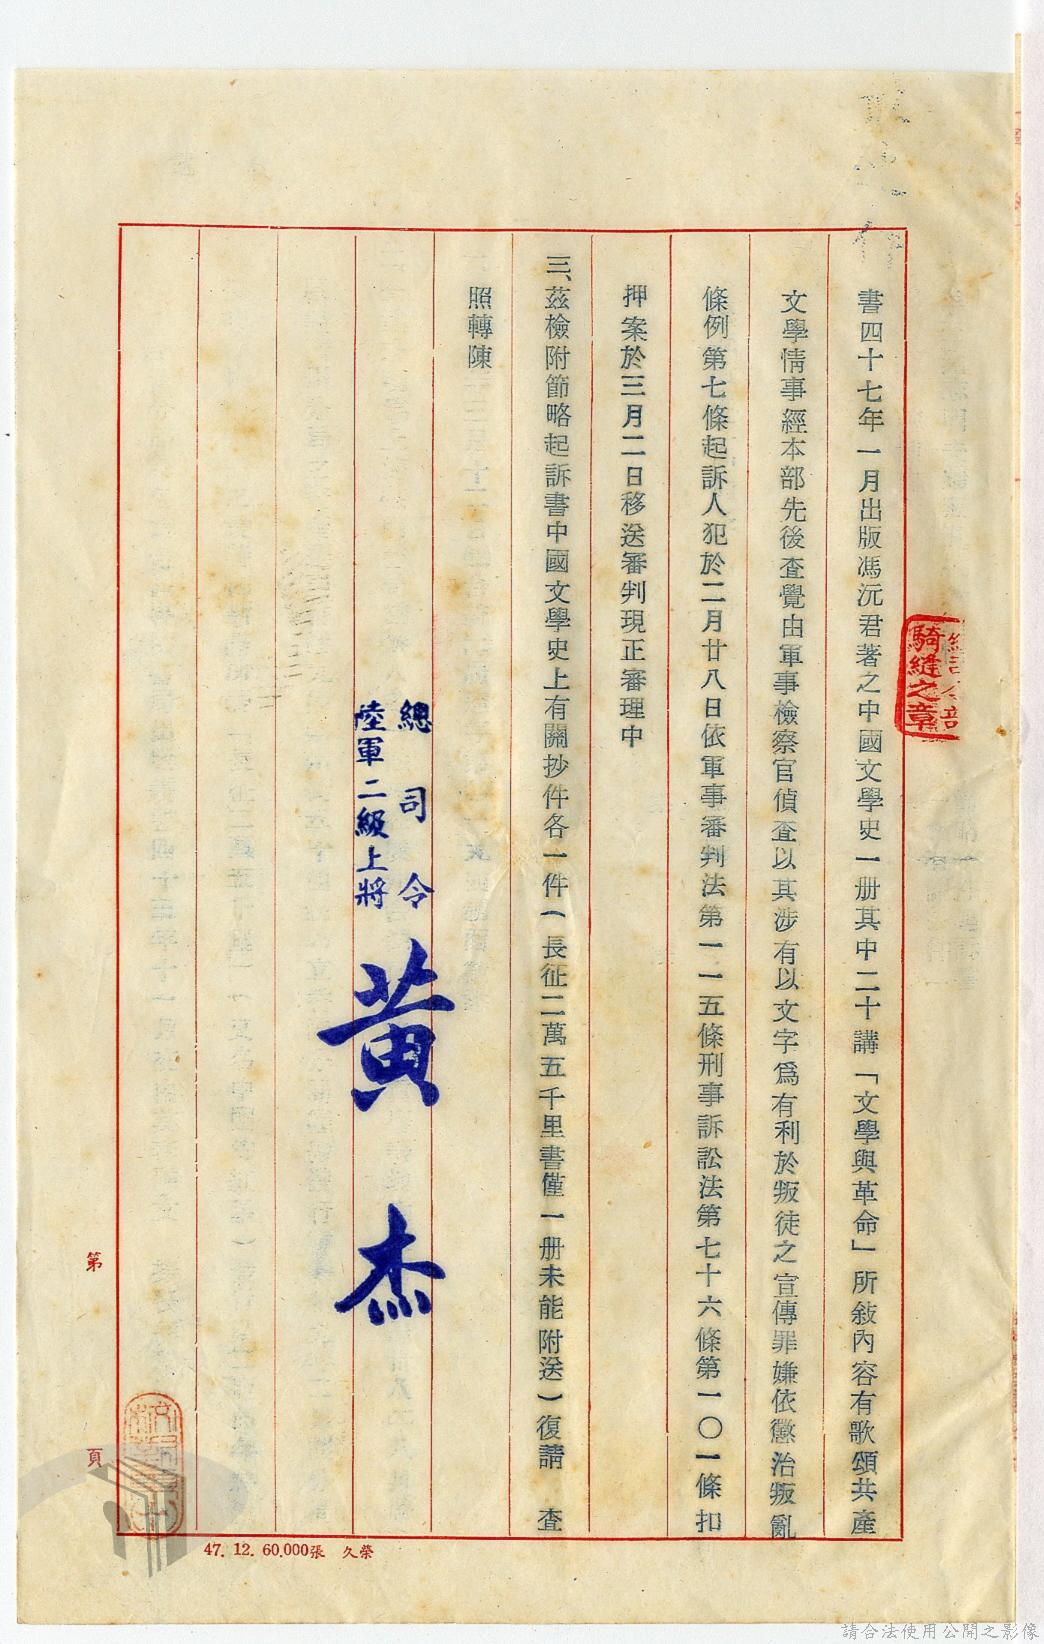 書四十七年一月出版馮沅君著之中國文學史一册其中二十講「文學與革命」所敍內容有歌頌共產
文學情事經本部先後查覺由軍事檢察官偵查以其涉有以文字爲有利於叛徒之宣傳罪嫌依懲治叛亂
條例第七條起訴人犯於二月廿八日依軍事審判法第一一五條刑事訴訟法第七十六條第一〇一條扣
押案於三月二日移送審判現正審理中
三、茲檢附節略起訴書中國文學史上有關抄件各一件(長征二萬五千里書僅一册未能附送)復請 查
照轉陳
總司令
陸軍二級上將
黃杰
騎縫之章
第 頁
47. 12. 60.000張 久榮
請合法使用公開之影像